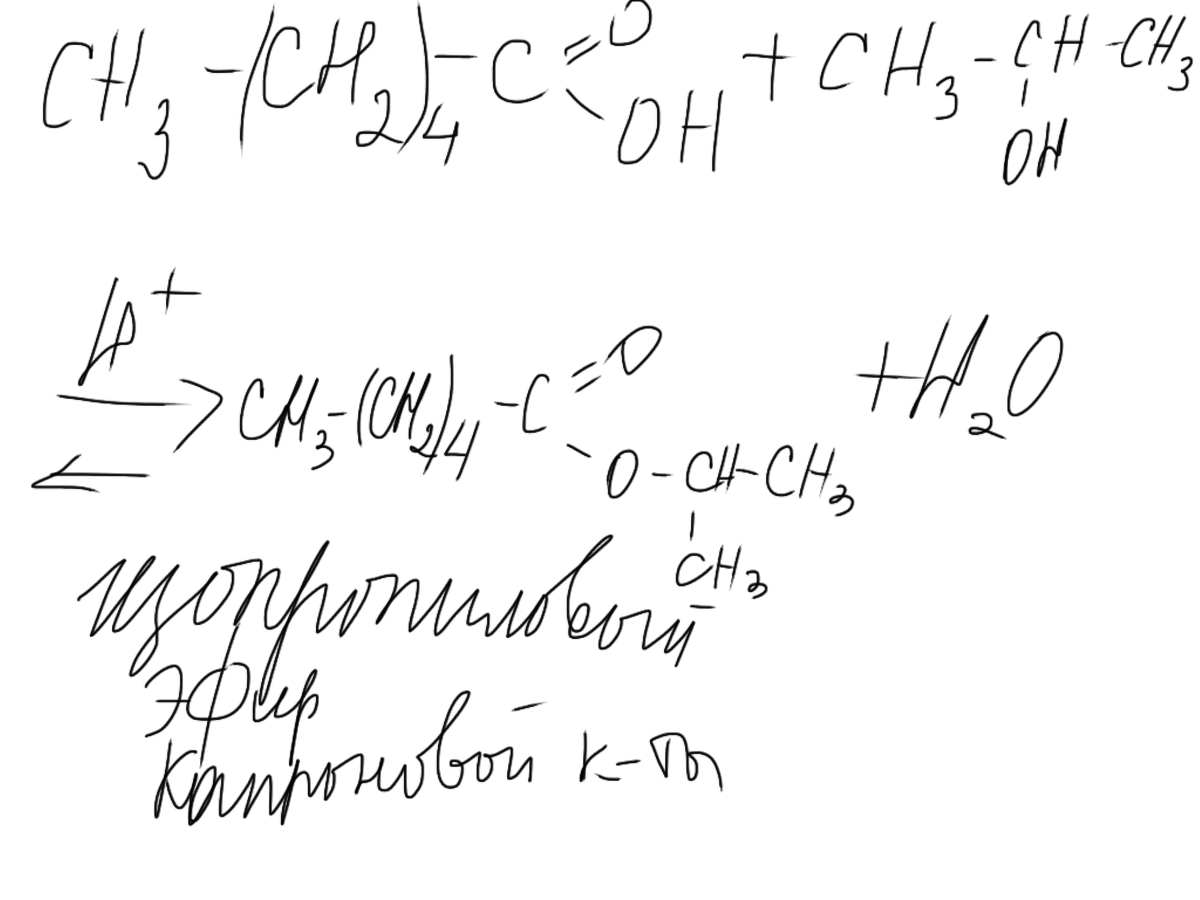 CH₃-(CH₂)₄-C=O OH + CH₃-CH-CH₃
OH
H⁺
⇄ CH₃-(CH₂)₄-C=O + H₂O
O-CH-CH₃
CH₃
изопропиловый
эфир
капроновой к-ты